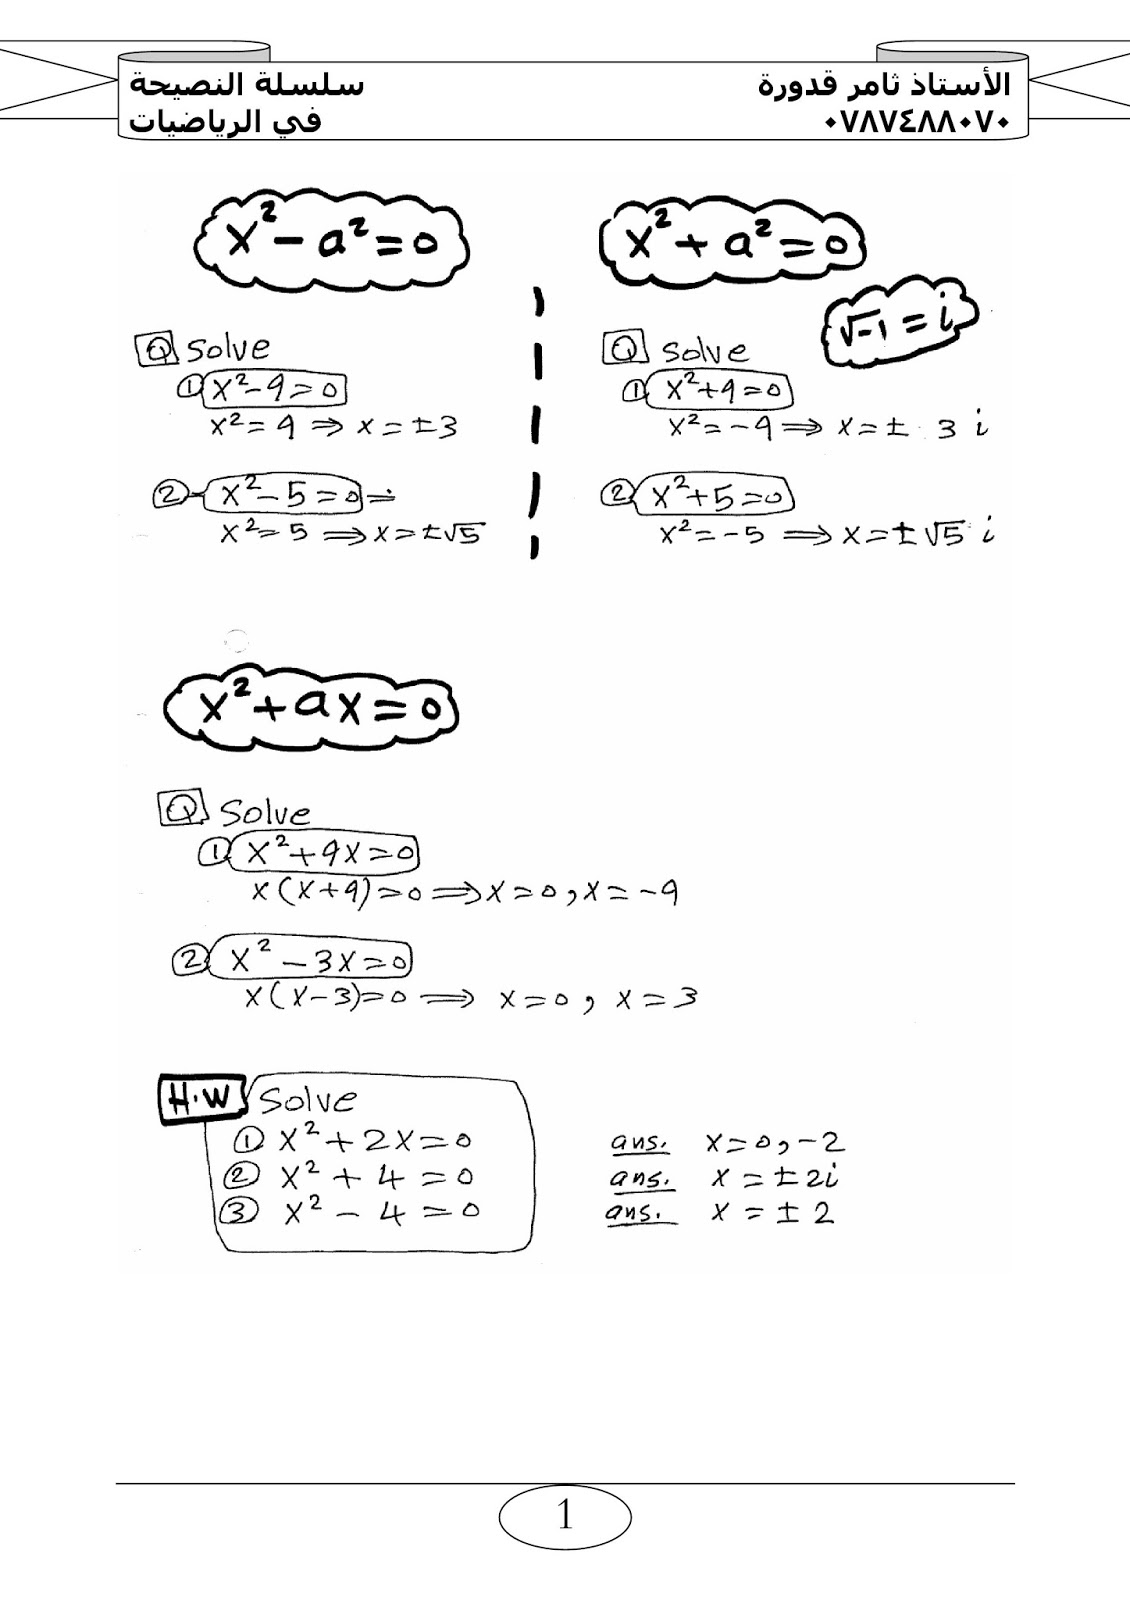 الأستاذ ثامر قدورة
٠٧٨٧٤٨٨٠٧٠
سلسلة النصيحة
في الرياضيات
x² - a² = 0
x² + a² = 0
√-1 = i
Q Solve
① x² - 9 = 0
x² = 9 ⇒ x = ±3
② x² - 5 = 0 =
x² = 5 ⇒ x = ±√5
Q Solve
① x² + 9 = 0
x² = -9 ⇒ x = ± 3 i
② x² + 5 = 0
x² = -5 ⇒ x = ±√5 i
x² + ax = 0
Q Solve
① x² + 9x = 0
x(x+9) = 0 ⇒ x = 0, x = -9
② x² - 3x = 0
x(x-3) = 0 ⇒ x = 0, x = 3
H.W Solve
① x² + 2x = 0 ans. x = 0, -2
② x² + 4 = 0 ans. x = ±2i
③ x² - 4 = 0 ans. x = ±2
1